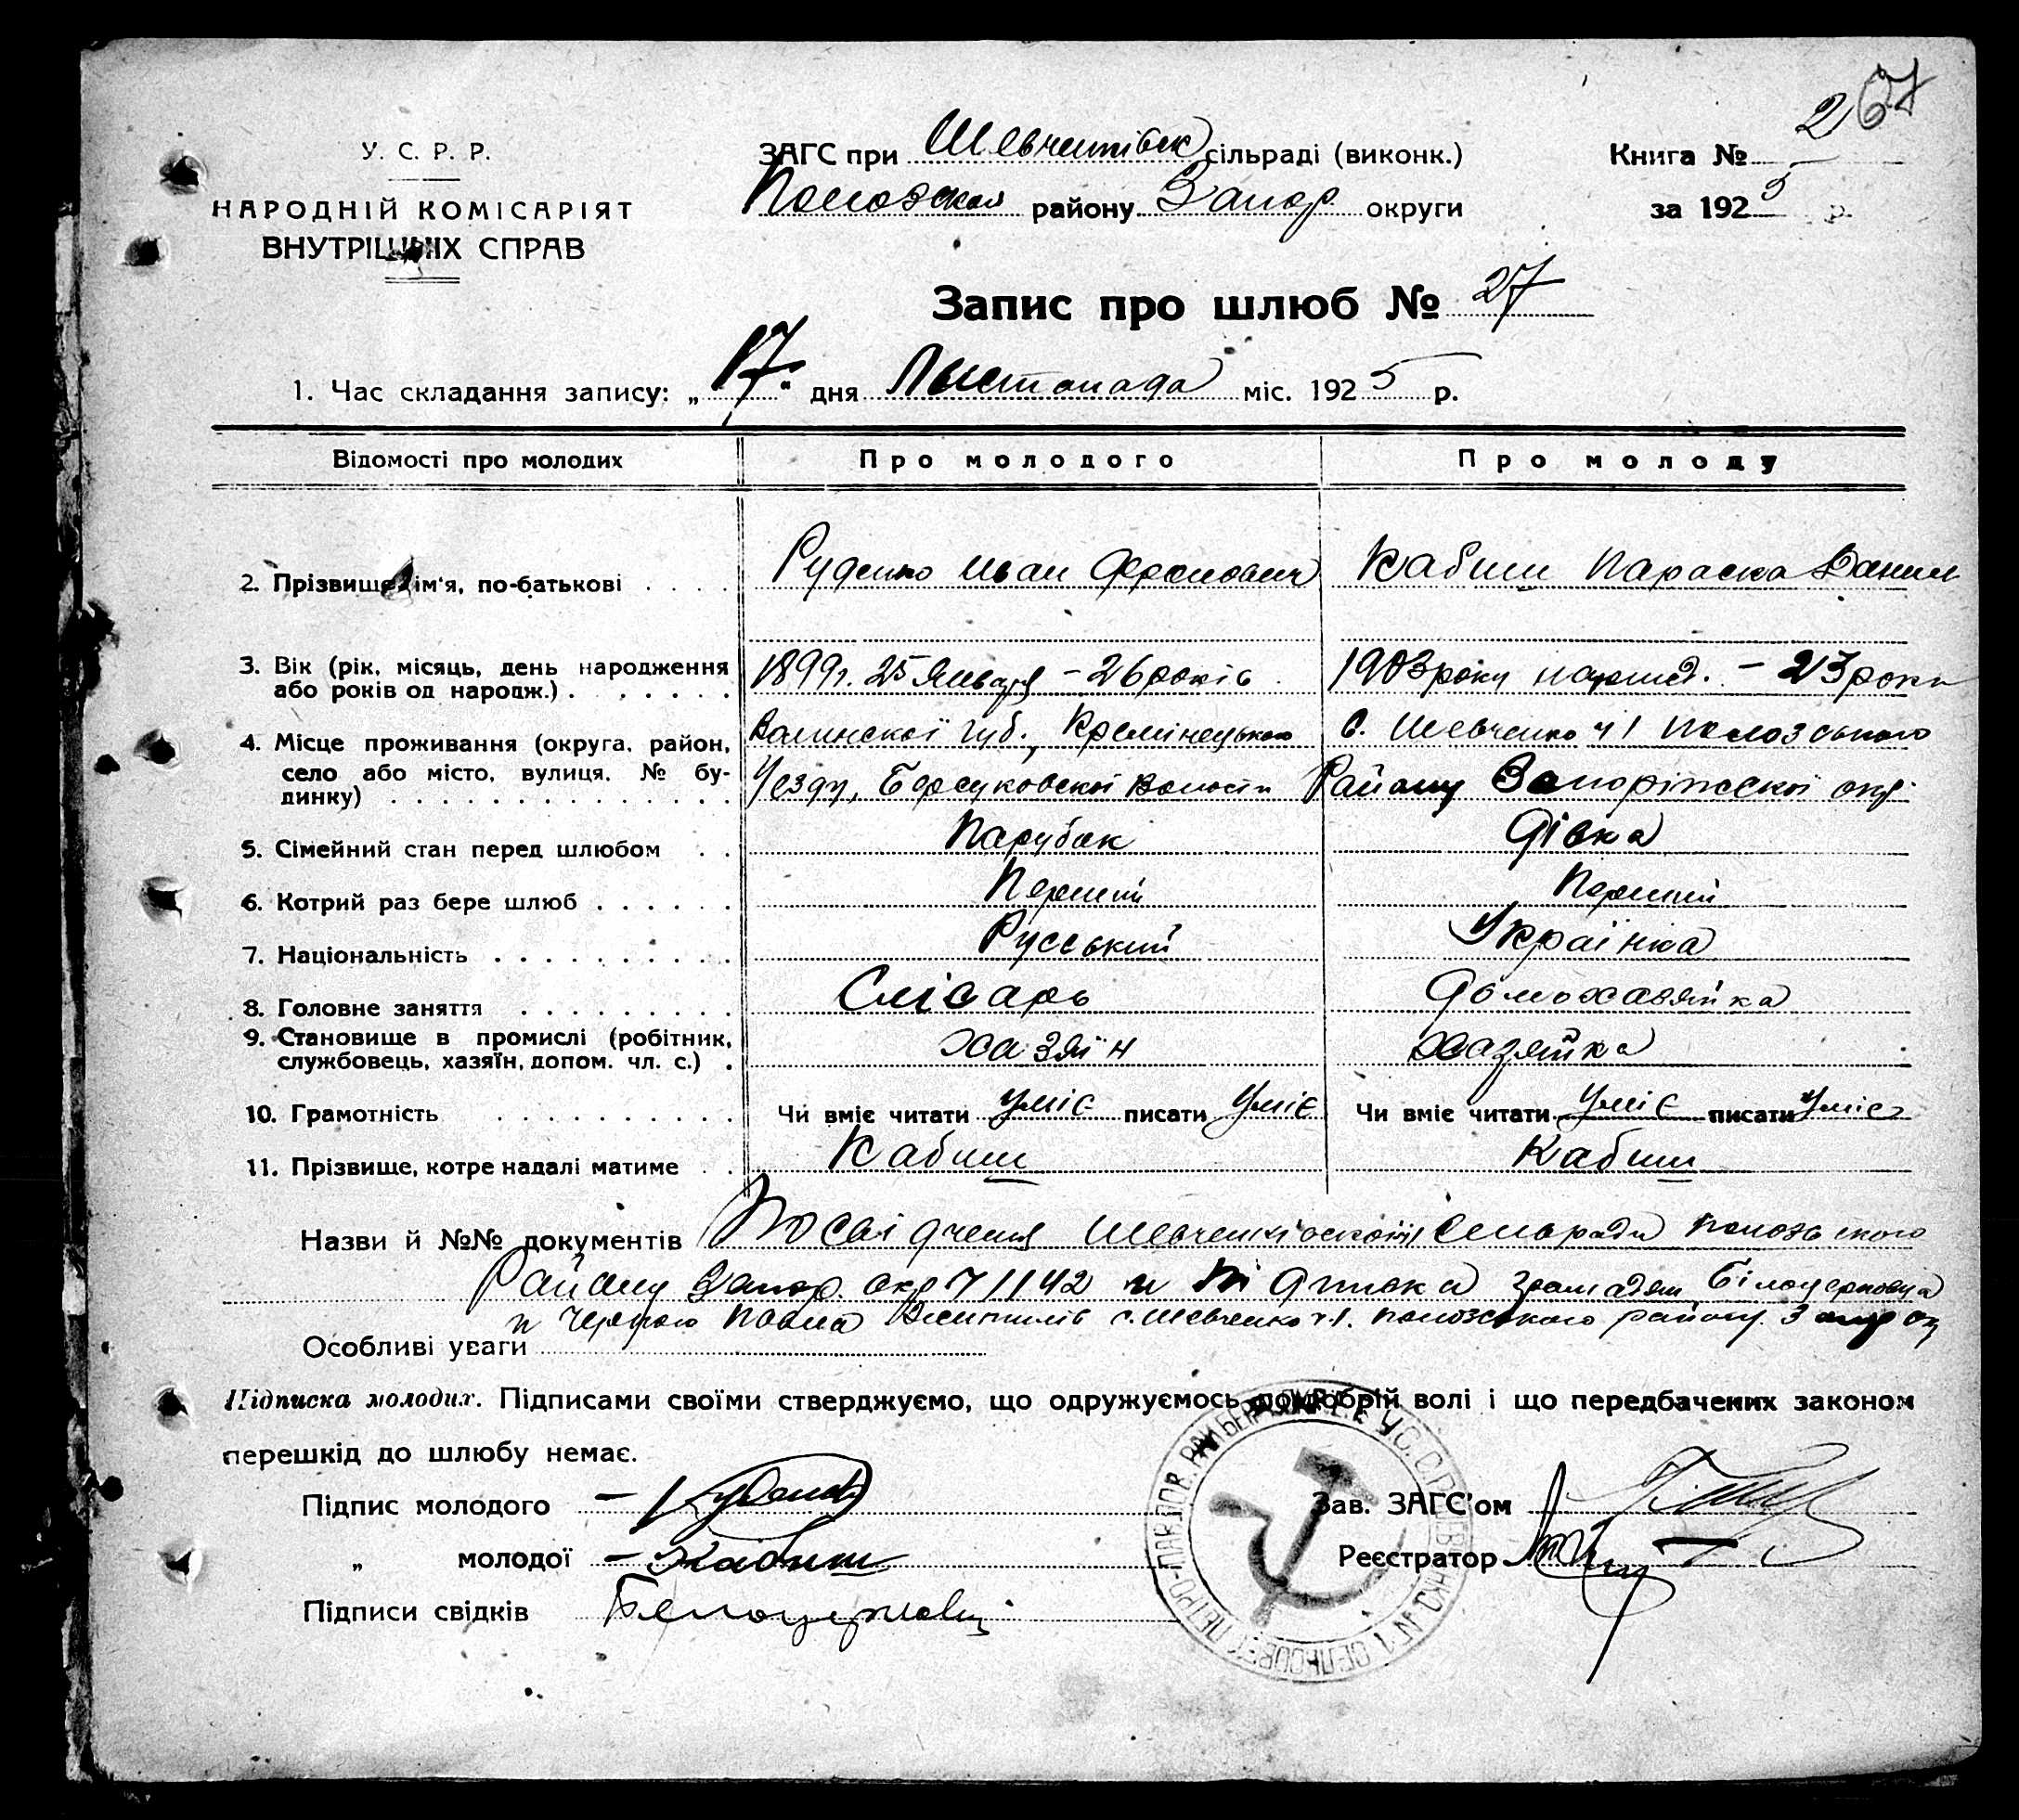 267
У. С. Р. Р.
НАРОДНІЙ КОМІСАРІЯТ
ВНУТРІШНІХ СПРАВ
ЗАГС при Шевченківск сільраді (виконк.)
району Запор округи
Книга №
за 1925 р.
Запис про шлюб № 27
1. Час складання запису: „17“ дня Листопада міс. 1925 р.
Відомості про молодих Про молодого Про молоду
2. Прізвище, ім'я, по-батькові Руденко Иван Кабиш Параска Данил
3. Вік (рік, місяць, день народження або років од народж.) 1899г. 25 Января – 26 років 1903 року – 23 роки
4. Місце проживання (округа, район, село або місто, вулиця, № будинку) Волинскої губ., Кремінецького с. Шевченко ч 1 Пологзського
Уезду, волости Району Запоріжскої окр.
5. Сімейний стан перед шлюбом Парубок Дівка
6. Котрий раз бере шлюб Перший Перший
7. Національність Руський Українка
8. Головне заняття Слісарь Домохазяйка
9. Становище в промислі (робітник, службовець, хазяїн, допом. чл. с.) Хазяїн Хазяйка
10. Грамотність Чи вміє читати Уміє писати Уміє Чи вміє читати Уміє писати Уміє
11. Прізвище, котре надалі матиме Кабиш Кабиш
Назви й №№ документів Посвідчення Шевченківської Сельради
Району Запор. окр 71142 и громадян Білоцерковца
и Павла с. Шевченко ч.1. району
Особливі уваги
Підписка молодих. Підписами своїми стверджуємо, що одружуємось по добрій волі і що передбачених законом
перешкід до шлюбу немає.
Підпис молодого – Руденко Зав. ЗАГС'ом
„ молодої – Кабиш Реєстратор
Підписи свідків